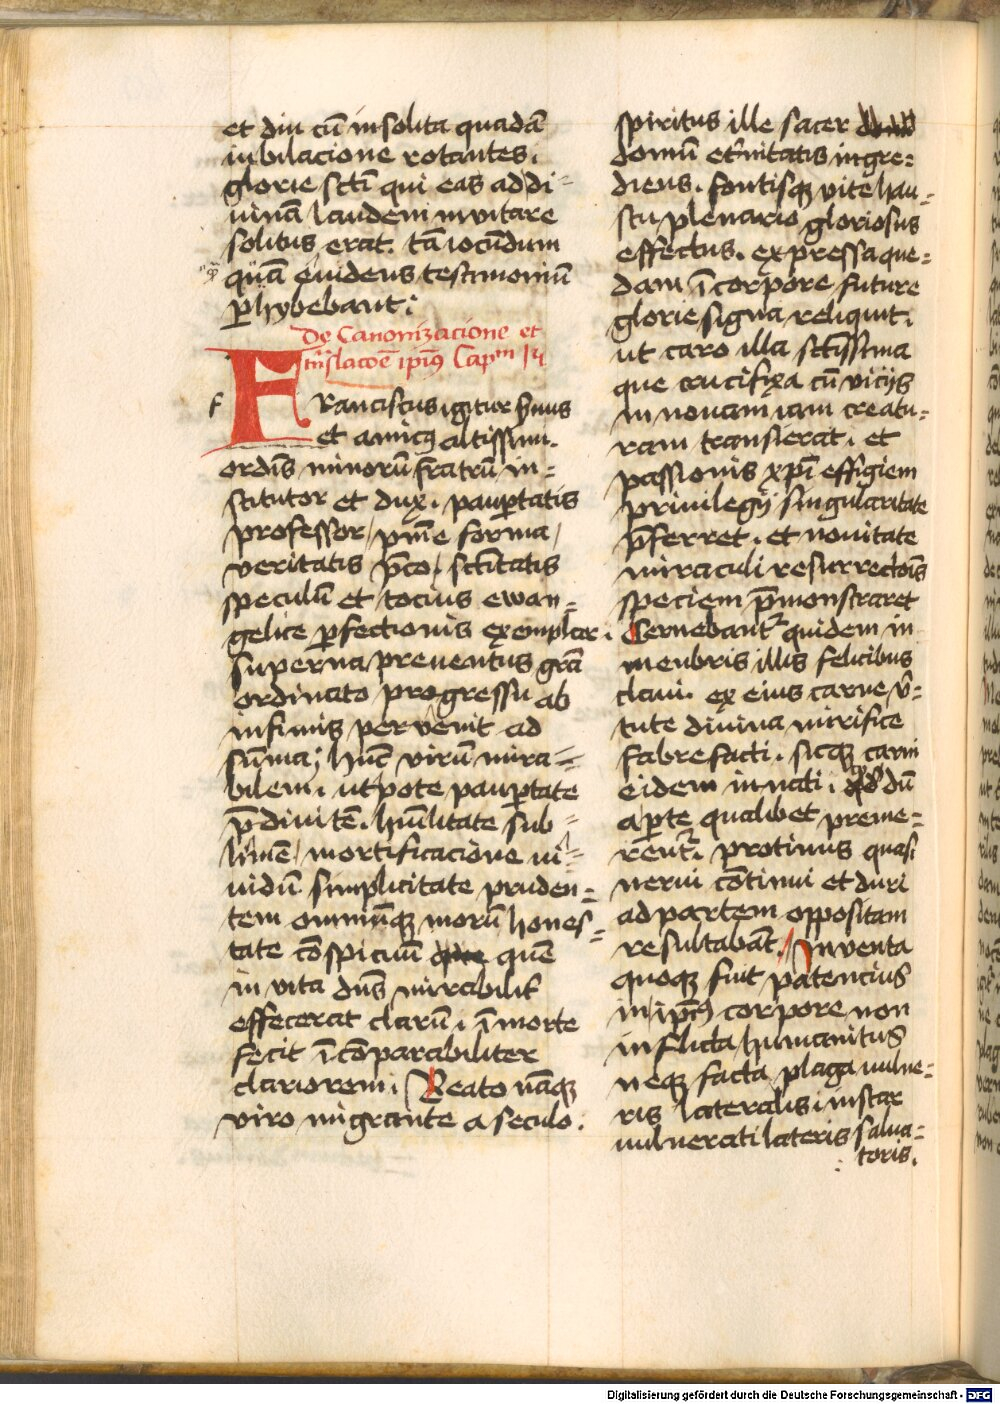 et diu cū insolita quadā
iubilacione rotantes.
glorie sctī qui eas ad di-
uinā laudem inuitare
solitus erat. tā iocūdum
quā euidens testimoniū
ꝑhybebant:
De Canonizacione et
trāslacōe ipiꝰ Capm
F
Franciscus igitur ẜuus
et amicꝰ altissimi.
ordīs minorū fratrū in=
stitutor et dux. pauꝑtatis
professor, pnīe forma,
veritatis p̄co, sctītatis
speculū et tocius ewan=
gelice ꝑfectionis exemplar.
superna preuentus grā
ordinato progressu ab
infimis peruenit ad
summa; hūc virū mira=
bilem. utpote pauꝑtate
p̄diuitē. hūilitate sub=
limē, mortificacione ui=
uidū simplicitate pruden=
tem omniūqꝫ morū hones=
tate cōspicuū quē
in vita dūs mirabilit̄
effecerat clarū. ī morte
fecit īcōparabiliter
clariorem. Beato nāqꝫ
viro migrante a seculo.
spiritus ille sacer
domū et̄nitatis ingre=
diens. fontisqꝫ vite hau=
stu plenario gloriosus
effectus. expressa que=
dam ī corpore future
glorie signa reliquit.
ut caro illa sctīssima
que crucifixa cū vicijs
in nouam iam creatu=
ram transierat. et
passionis xpī effigiem
priuilegij singularitate
p̄ferret. et nouitate
miraculi resurrectōis
speciem p̄monstraret
Cernebant᷑ quidem in
menbris illis felicibus
claui. ex eius carne v̄=
tute diuina mirifice
fabrefacti. sicqꝫ carni
eidem innati. qd̄ dū
a ꝑte qualibet preme=
rent᷑. protinus quasi
nerui cōtinui et duri
ad partem oppositam
resultabāt. Inuenta
quoqꝫ fuit patencius
in ipīꝰ corpore non
inflicta humanitus
neqꝫ facta plaga uulne=
ris lateralis. instar
uulnerati lateris salua=
toris.